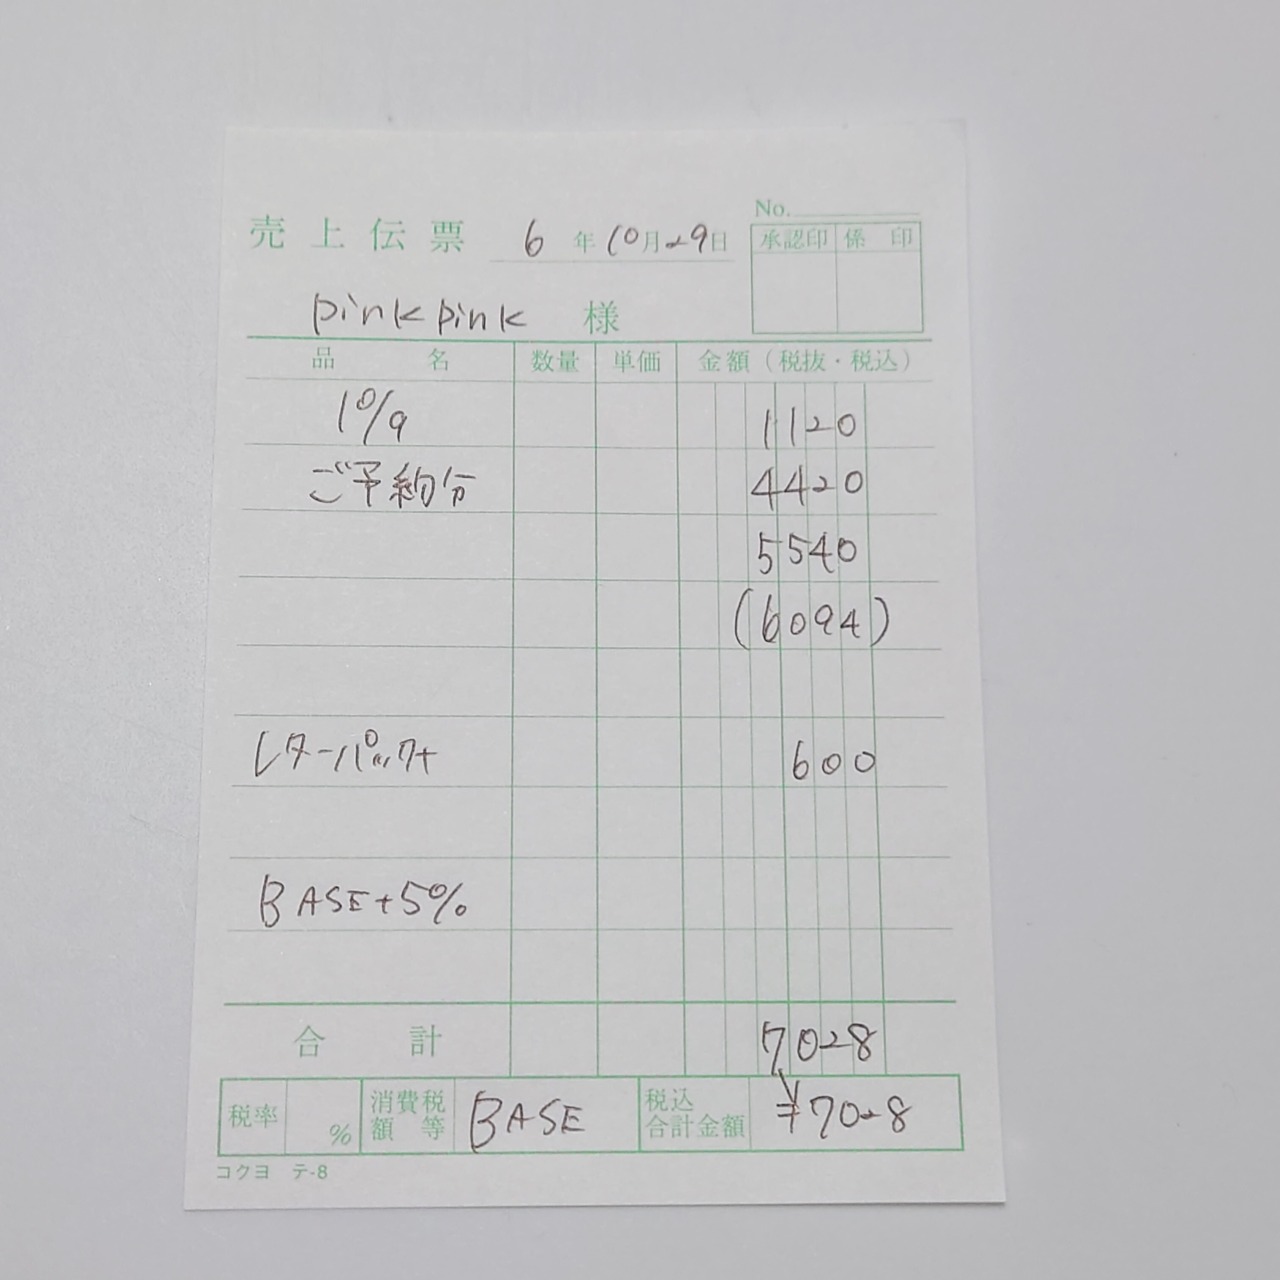 No.
売上伝票 6年10月29日
承認印 係印
pinkpink 様
品名 数量 単価 金額（税抜・税込）
10/9 1120
ご予約分 4420
5540
(6094)
レターパック+ 600
BASE+5%
合計 7028
税率 % 消費税額等 BASE 税込合計金額 ¥7028
コクヨ テ-8